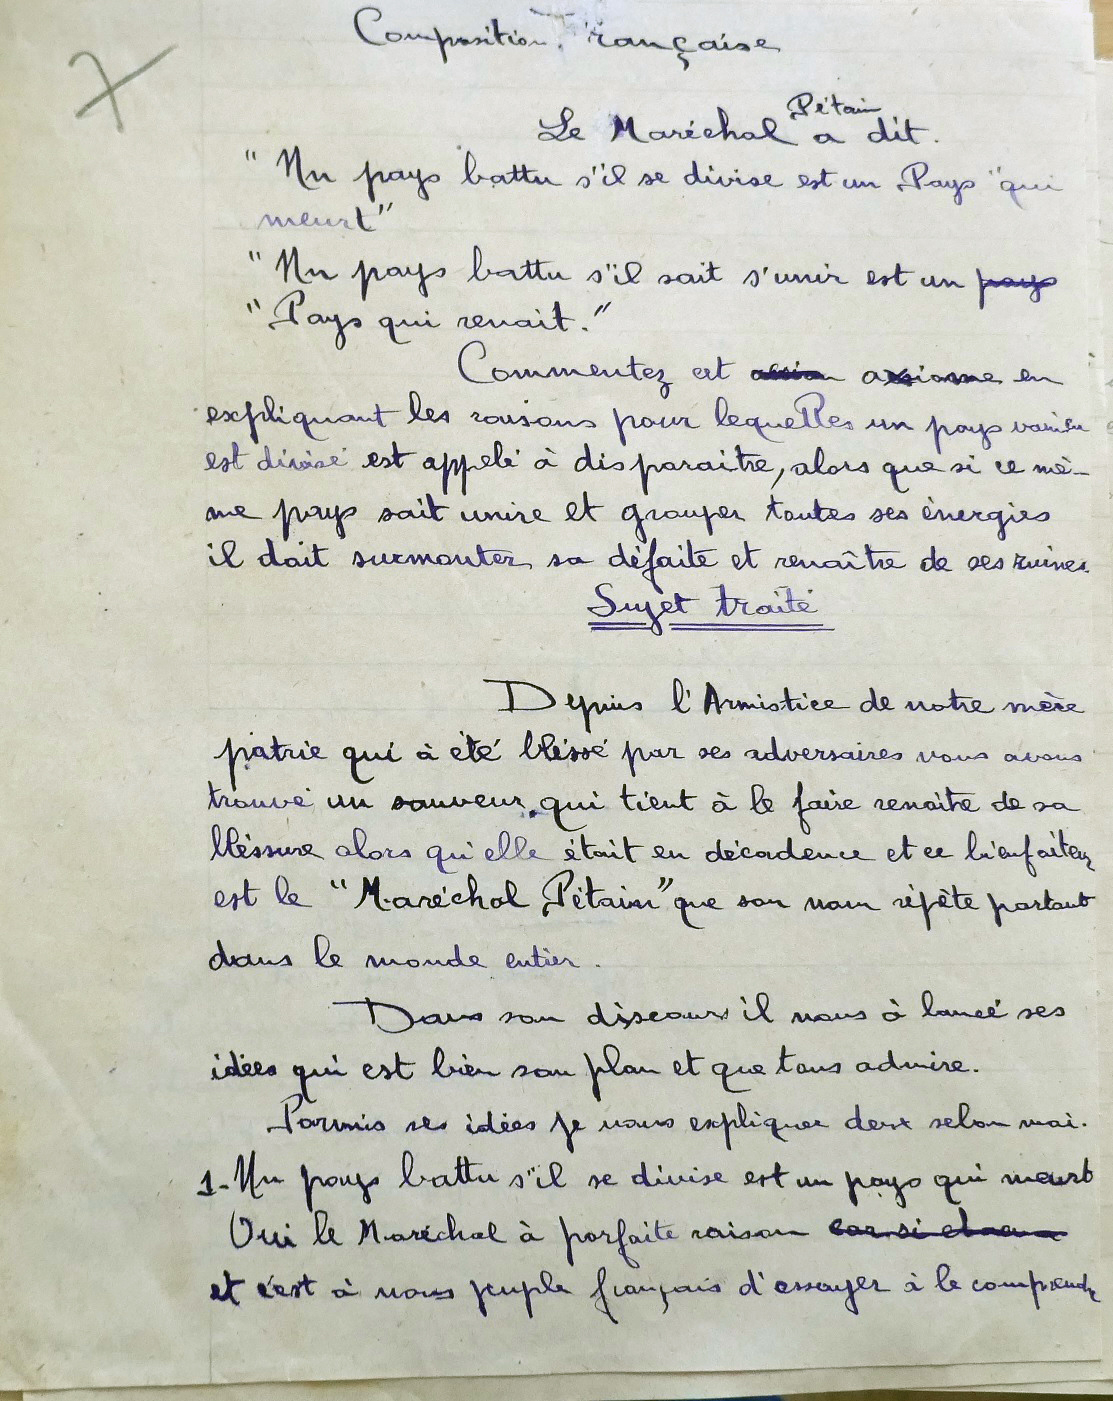 Composition Française
Le Maréchal Pétain a dit.
"Un pays battu s'il se divise est un Pays "qui
meurt"
"Un pays battu s'il sait s'unir est un pays
"Pays qui renait."
Commentez cet axiome en
expliquant les raisons pour lequelles un pays vaincu
est divisé est appelé à disparaitre, alors que si ce mê-
me pays sait unire et grouper toutes ses énergies
il doit surmonter sa défaite et renaître de ses ruines.
Sujet traité
Depuis l'Armistice de notre mère
patrie qui à été bléssé par ses adversaires nous avons
trouvé un sauveur qui tient à le faire renaite de sa
bléssure alors qu'elle était en décadence et ce bienfaiteur
est le "Maréchal Pétain" que son nom répète partout
dans le monde entier.
Dans son discours il nous à lancé ses
idées qui est bien son plan et que tous admire.
Parmis ses idées je vous expliquer deux selon moi.
1-Un pays battu s'il se divise est un pays qui meurt
Oui le Maréchal à parfaite raison car si
et c'est à nous peuple français d'essayer à le comprendre